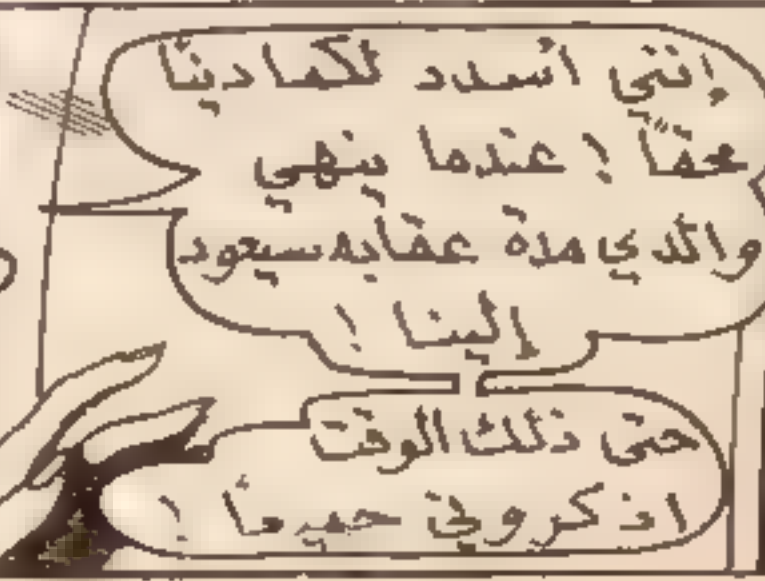 إنني أسدد لكما دينًا
محقًا ! عندما ينهي
والدي مدة عقابه سيعود
إلينا !
حتى ذلك الوقت
اذكروني جميعًا !